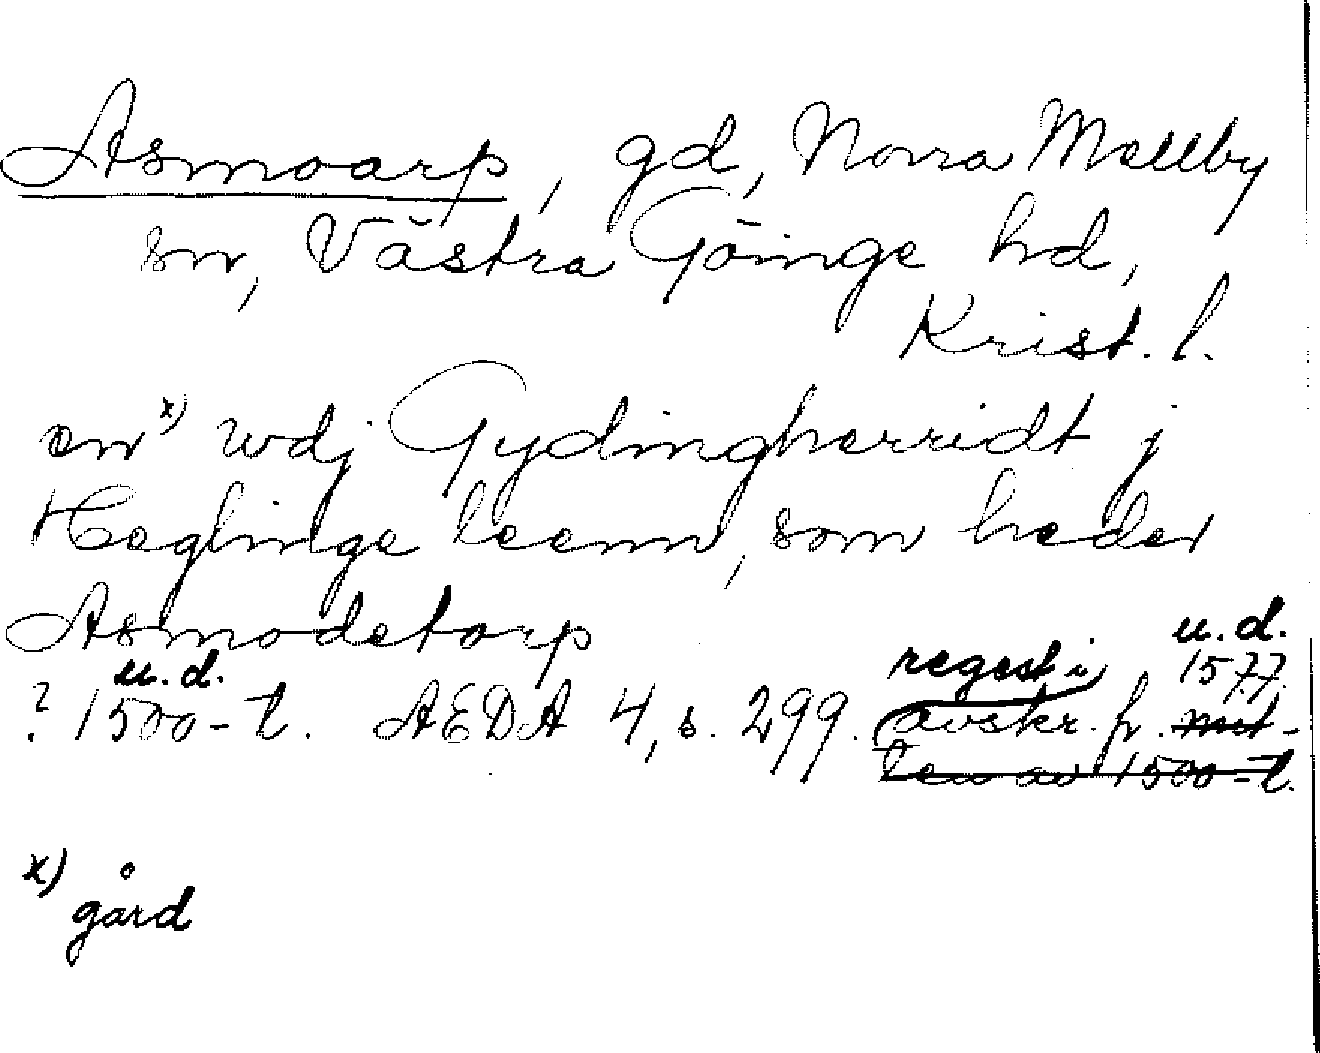 Asmoarp, gd, Norra Mellby
sn, Västra Göinge hd,
Krist. l.
en x) wdj Gydingherridt j
Heglinge leenn, som heder
Asmodetorp
u.d. regest i u.d.
? 1500-t. AEDA 4, s. 299. (avskr. fr. mit- 1577.
ten av 1500-t.
x) gård